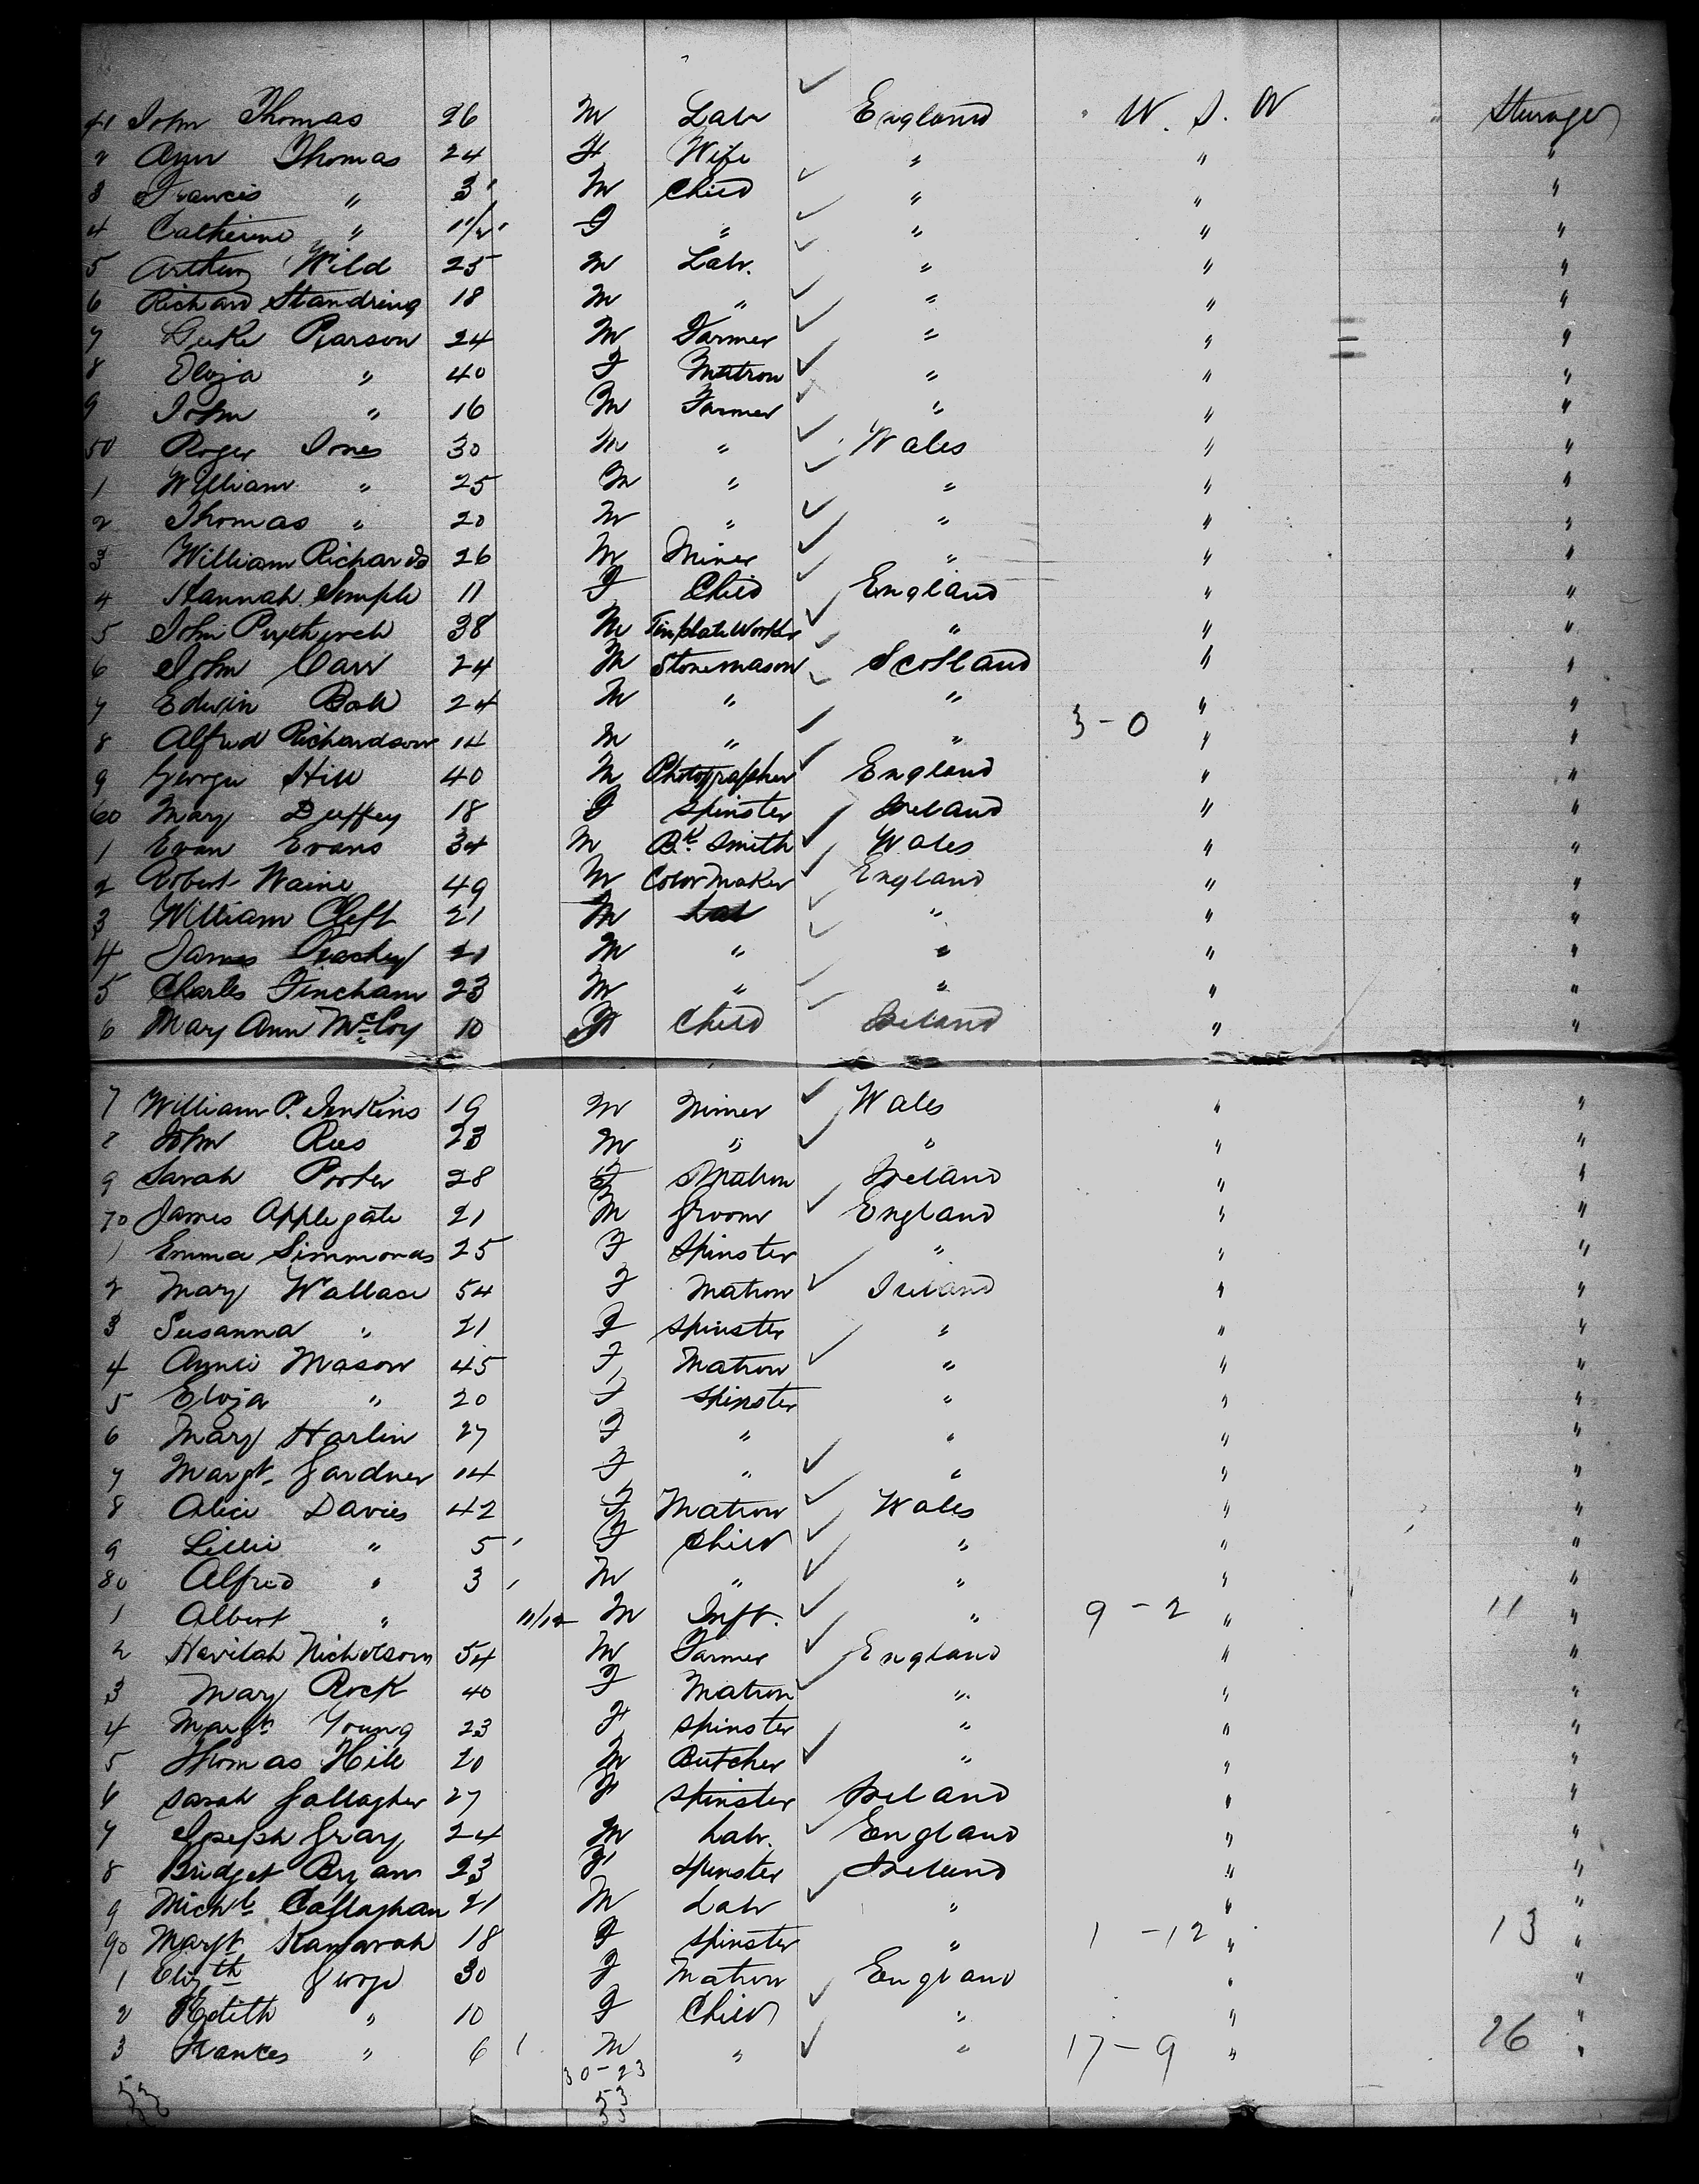 41 John Thomas 26 M Labr England U. S. A Steerage
2 Ann Thomas 24 F Wife " " "
3 Francis " 3 M Child " " "
4 Catherine " 11/2 F " " " "
5 Arthur Wild 25 M Labr. " " "
6 Richard Standring 18 M " " " "
7 Luke Pearson 24 M Farmer " " "
8 Eliza " 40 F Matron " " "
9 John " 16 M Farmer " " "
50 Roger Jones 30 M " Wales " "
1 William " 25 M " " " "
2 Thomas " 20 M " " " "
3 William Richards 26 M Miner " " "
4 Hannah Semple 11 F Child England " "
5 John 38 M Tinplate Worker " " "
6 John Carr 24 M Stonemason Scotland " "
7 Edwin 24 M " " " "
8 Alfred Richardson 14 M " " 3-0 " "
9 George Hill 40 M Photographer England " "
60 Mary Duffey 18 F Spinster Ireland " "
1 Evan Evans 34 M Bk. Smith Wales " "
2 Robert Waine 49 M Color Maker England " "
3 William Cleft 21 M Lab " " "
4 James 21 M " " " "
5 Charles Fincham 23 M " " " "
6 Mary Ann McCoy 10 F Child Ireland " "
7 William P. Jenkins 19 M Miner Wales " "
8 John Rees 23 M " " " "
9 Sarah Porter 28 F Matron Ireland " "
70 James Applegate 21 M Groom England " "
1 Emma Simmonds 25 F Spinster " " "
2 Mary Wallace 54 F Matron Ireland " "
3 Susanna " 21 F Spinster " " "
4 Annie Mason 45 F Matron " " "
5 Eliza " 20 F Spinster " " "
6 Mary Harlin 27 F " " " "
7 Margt. Gardner 14 F " " " "
8 Alice Davies 42 F Matron Wales " "
9 Lillie " 5 F Child " " "
80 Alfred " 3 M " " " "
1 Albert " 11/12 M Inft. " 9-2 " 11 "
2 Havilah Nicholson 54 M Farmer England " "
3 Mary Rock 40 F Matron " " "
4 Margt. Young 23 F Spinster " " "
5 Thomas Hill 20 M Butcher " " "
6 Sarah Gallagher 27 F Spinster Ireland " "
7 Joseph Gray 24 M Labr. England " "
8 Bridget Bryan 23 F Spinster Ireland " "
9 Michl. Callaghan 21 M Labr " " "
90 Margt. Kanavah 18 F Spinster " 1-12 " 13 "
1 Elizth George 30 F Matron England " "
2 Edith " 10 F Child " " "
3 Frances " 6 M " " 17-9 " 26 "
30-23
53 53